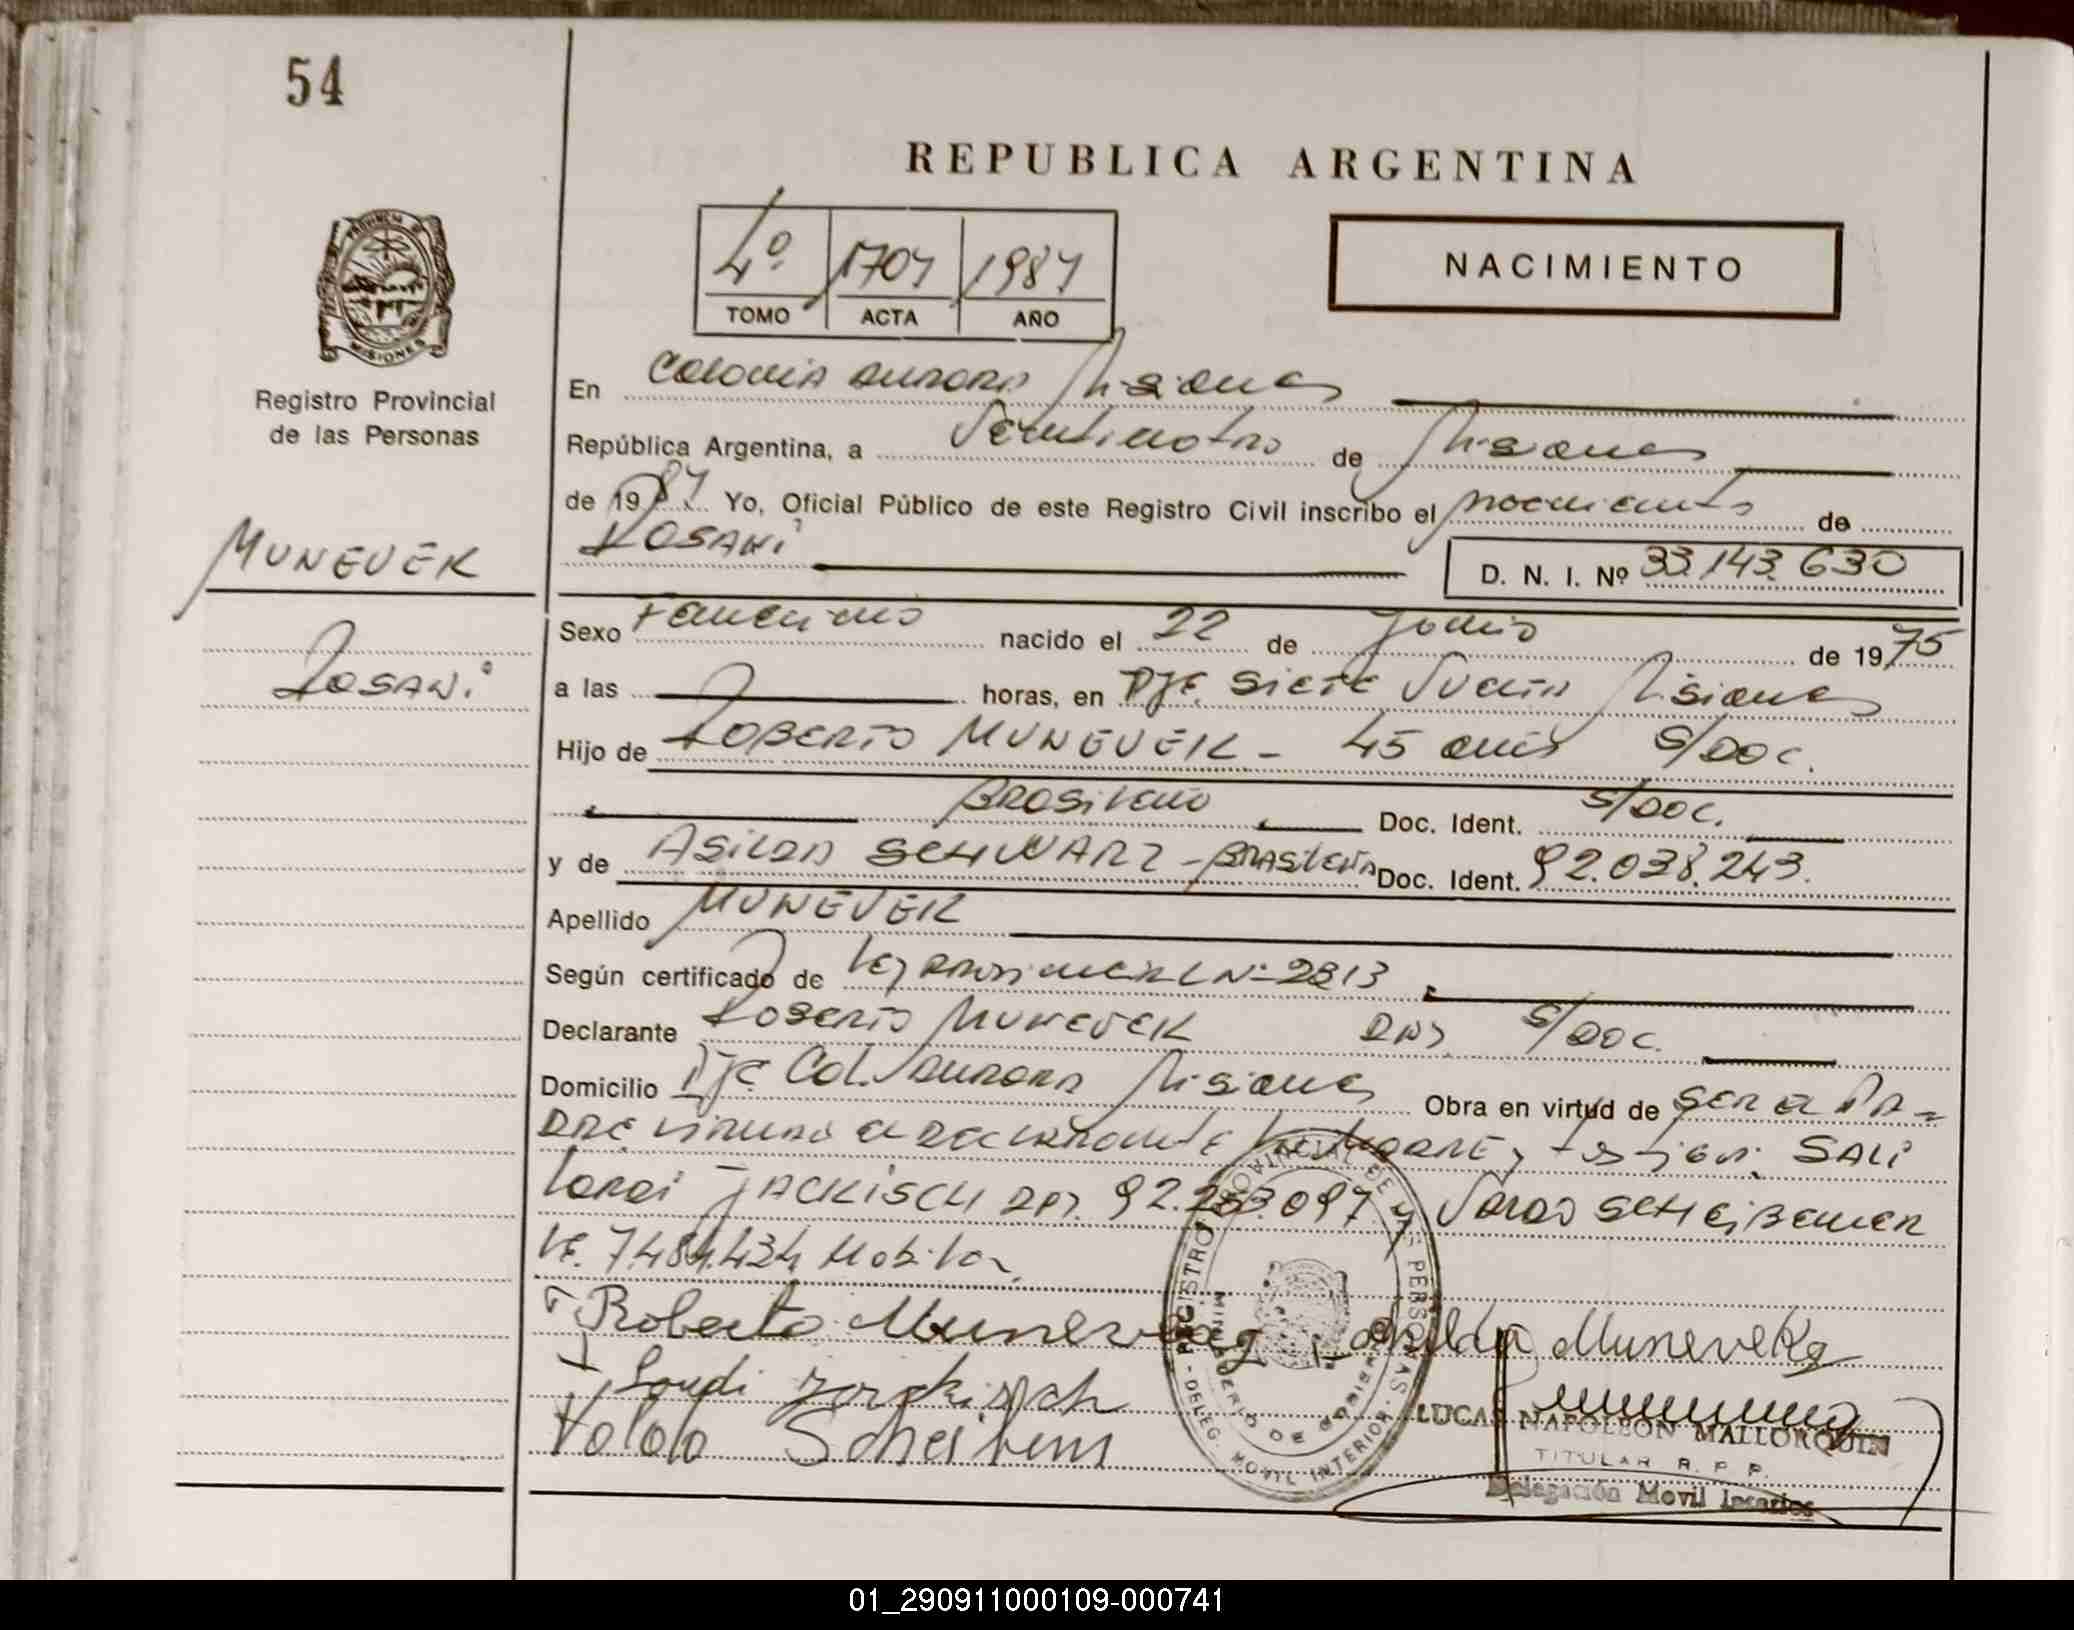 54
REPUBLICA ARGENTINA
PROVINCIA DE
MISIONES
Registro Provincial
de las Personas
4º 1707 1987
TOMO ACTA AÑO
NACIMIENTO
En Colonia Aurora Misiones
República Argentina, a Veinticuatro de Misiones
de 1987 Yo, Oficial Público de este Registro Civil inscribo el nacimiento de
MUNEVEK
ROSANi
D. N. I. Nº 33.143.630
Sexo Femenino nacido el 22 de Junio de 1975
ROSANi
a las horas, en Pje. Siete Vueltas Misiones
Hijo de ROBERTO MUNEVEK - 45 años S/DOC.
Brasileño Doc. Ident. S/DOC.
y de ASiLDA SCHWARZ - BRASileña Doc. Ident. 92.038.243.
Apellido MUNEVEK
Según certificado de Ley Provincial Nº 2813
Declarante ROBERTO MUNEVEK DNI S/DOC.
Domicilio Pje. Col. Aurora Misiones Obra en virtud de SER el PA-
DRE y testigos: SALi
JACKiSCH DNI. 92.283.097 y SCHEiBEMER
LE. 7.484.434
Roberto Munever
Munevek
JACKISCH
REGISTRO PROVINCIAL DE LAS PERSONAS
MINISTERIO DE GOBIERNO
DELEG. MOVIL INTERIOR
LUCAS NAPOLEON MALLORQUIN
TITULAR R. P. P.
Delegación Movil Interior
01_290911000109-000741